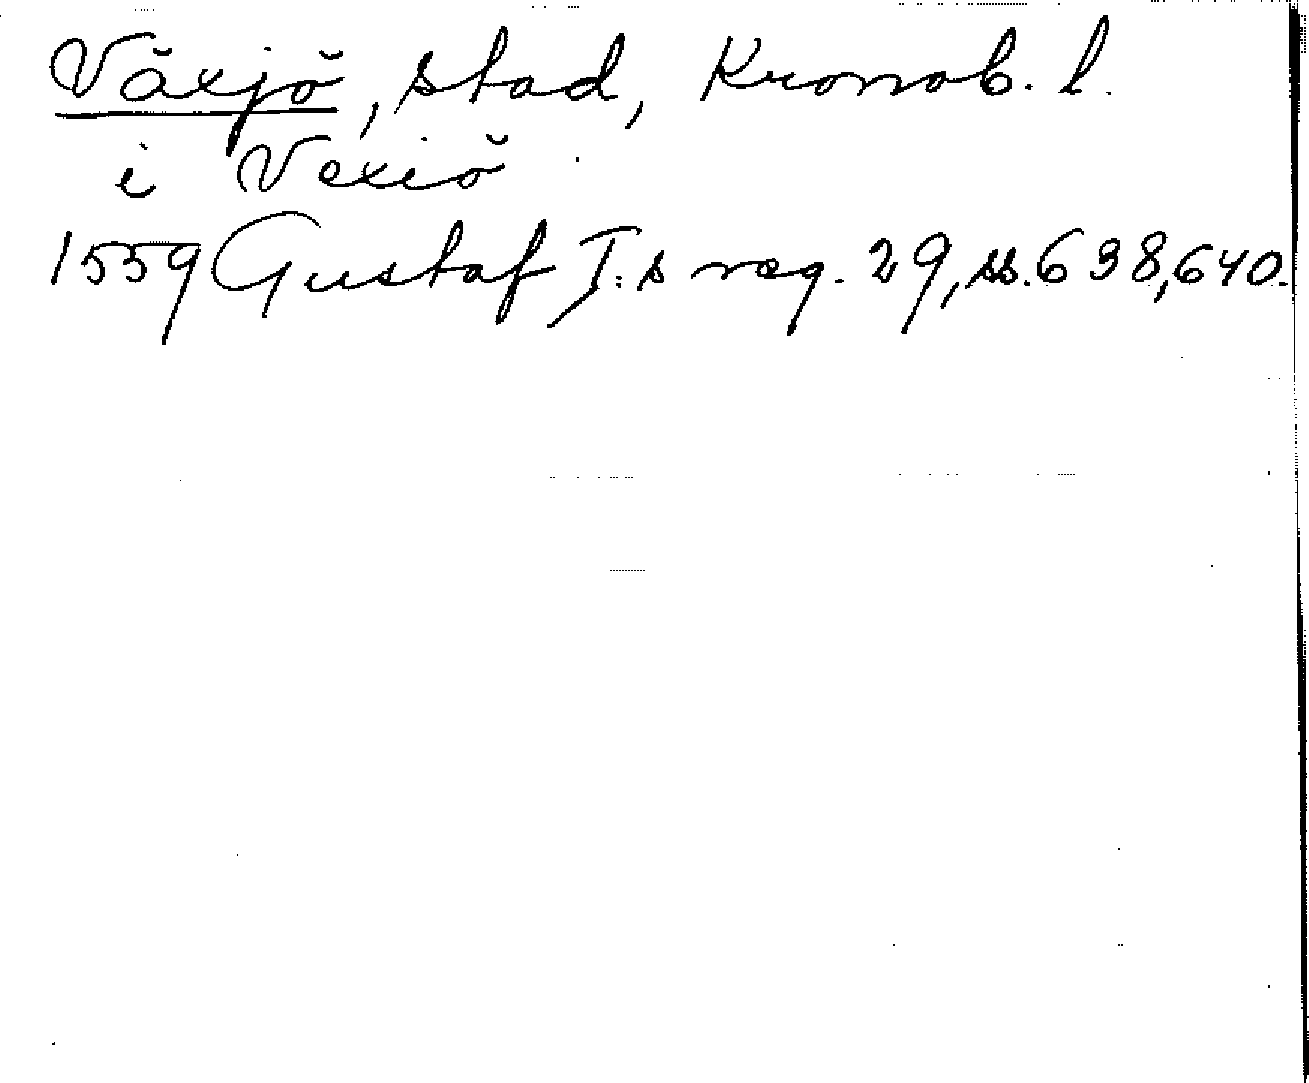 Växjö, stad, Kronob. l.
i Vexiö
1559 Gustaf I:s reg. 29, ss. 638, 640.